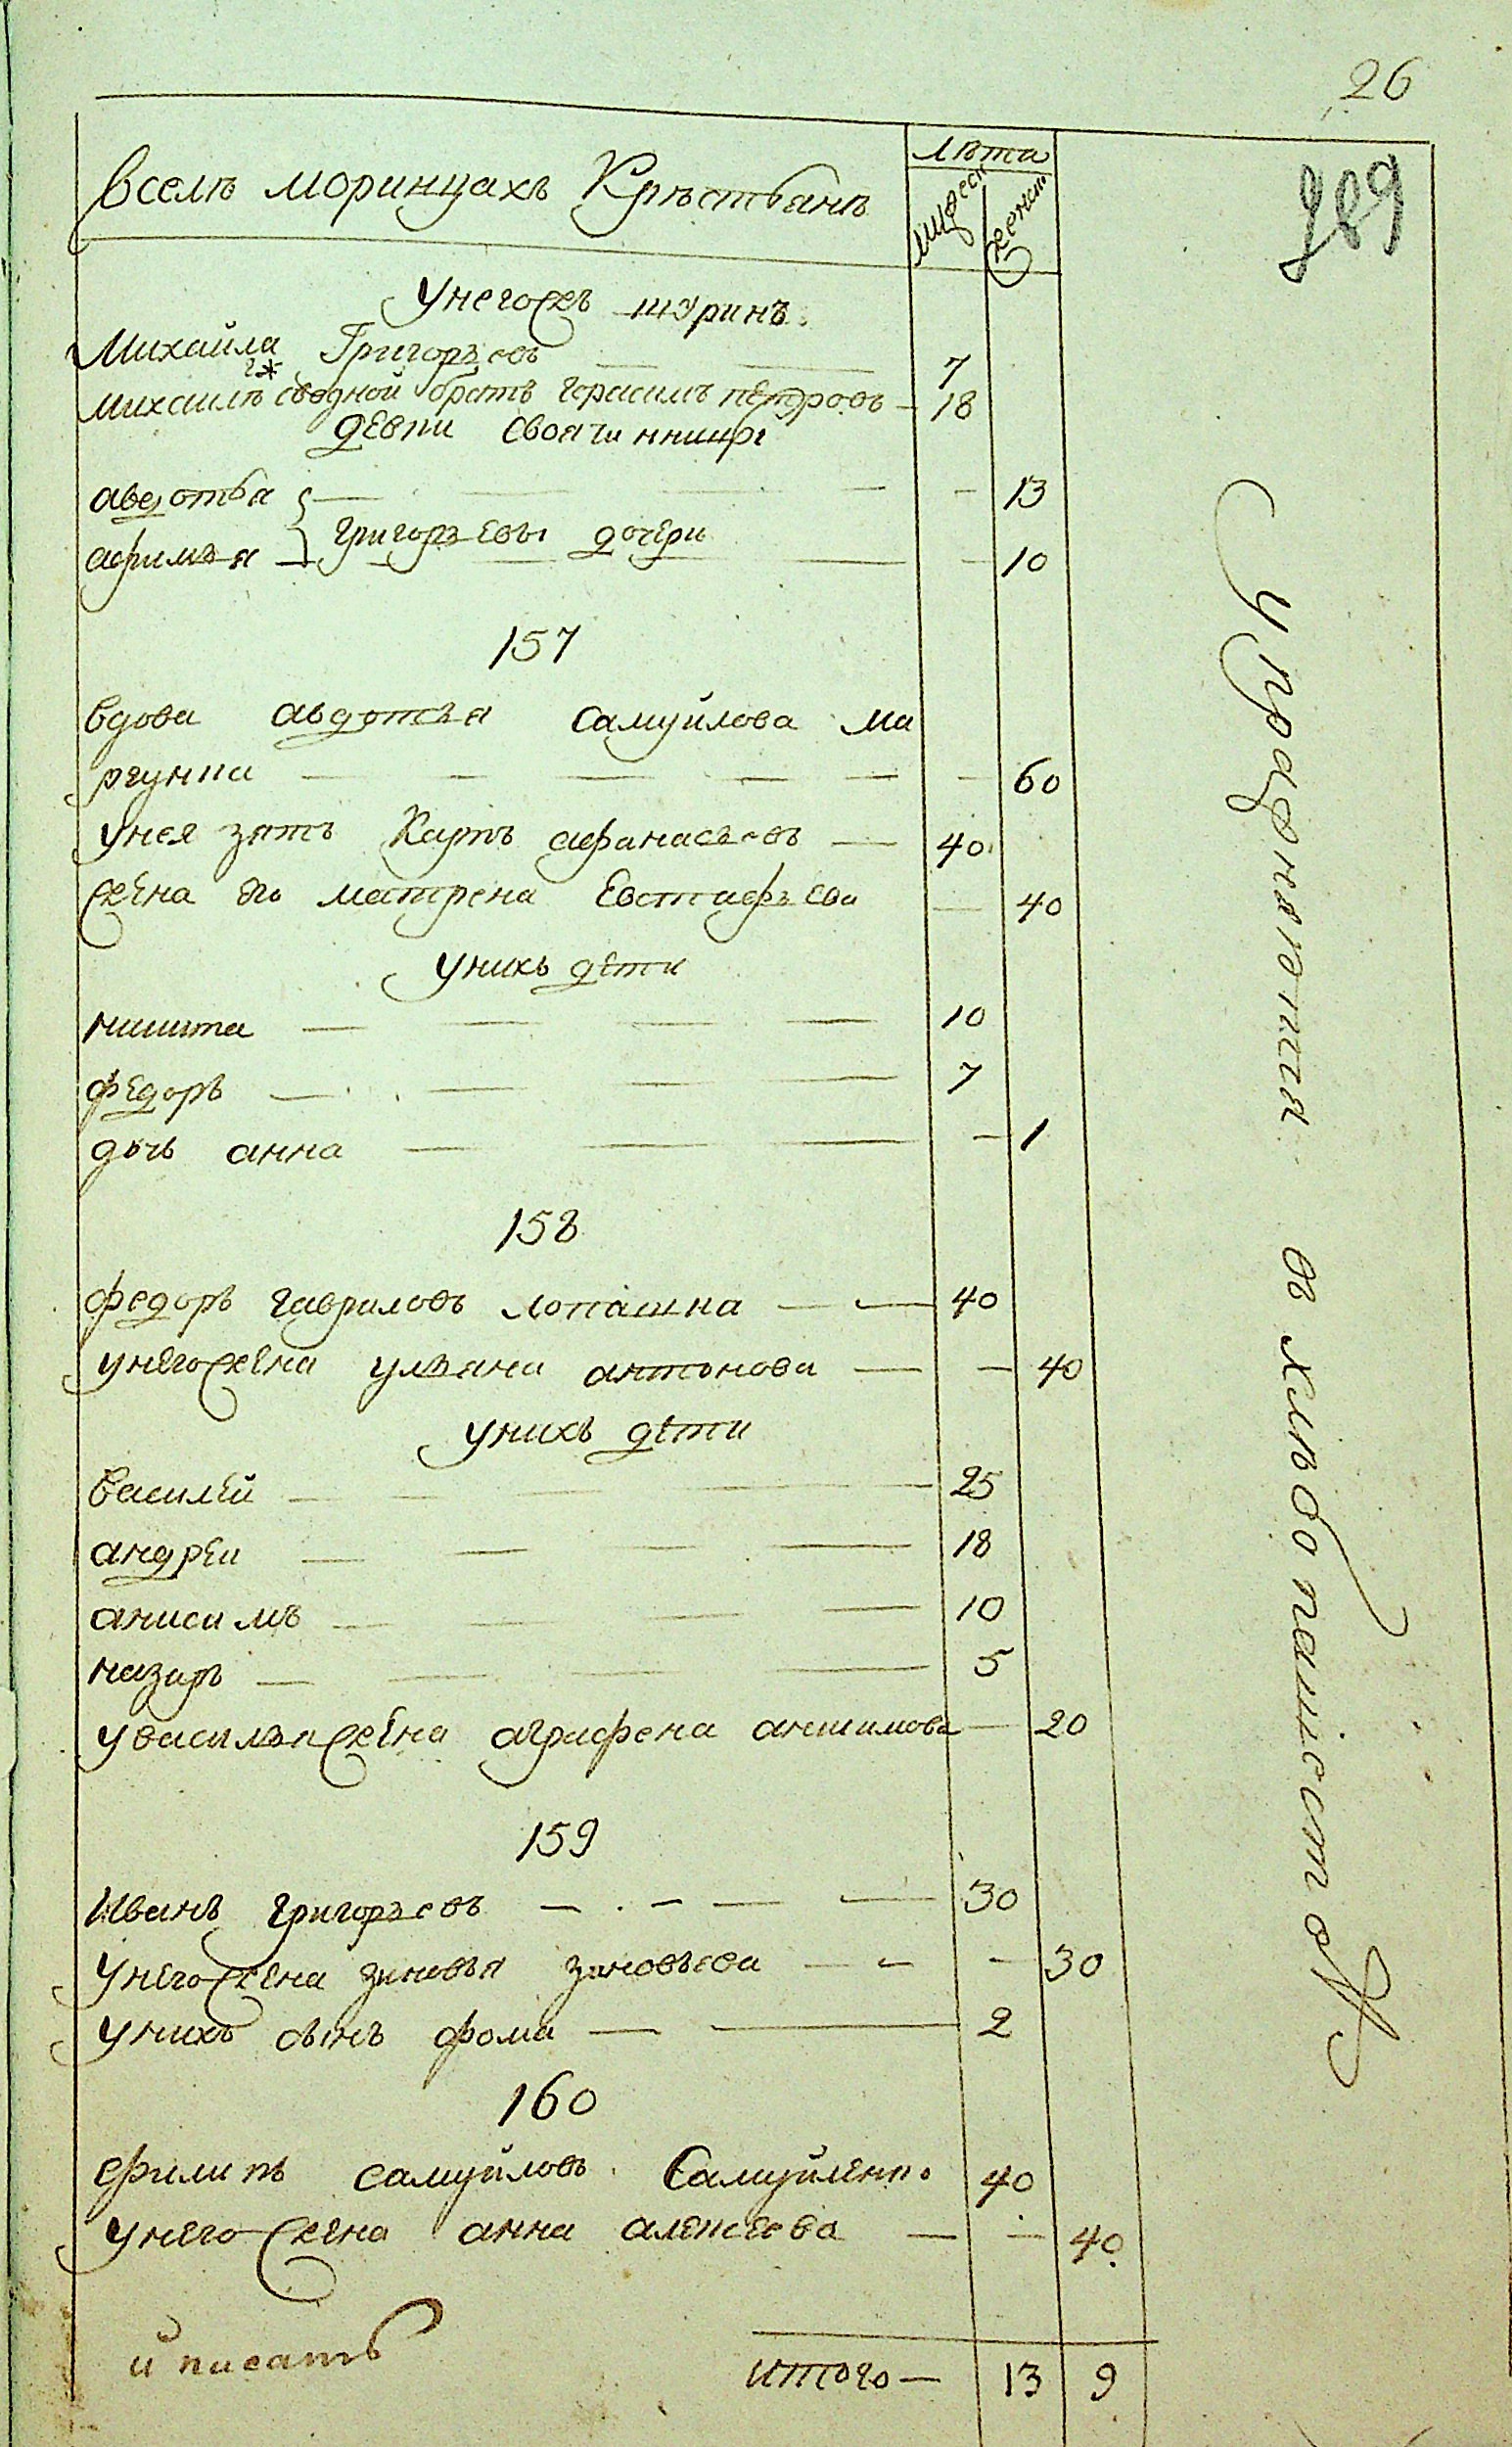 26
789
вселѣ моринцахъ Крѣстьянъ
лѣта
мужеск
женска
унегожъ шуринъ
Михайла Григорьевъ — — 7
михаилѣ сводной братъ герасимъ петровъ — 18
девки своячинницы
авдотья — — — — — 13
Григорьевы дочери
афимья — — — — — 10
157
вдова авдотья самуйлова ма
ргунка — — — — — — 60
унея зять Карпъ афанасьевъ — 40
жена его матрена Евстафьева — 40
унихъ дети
никита — — — — 10
федоръ — — — — 7
дочь анна — — — 1
158
федоръ гавриловъ лопашка — — 40
унегожена ульяна антонова — — 40
унихъ дѣти
василей — — — — 25
андреи — — — — 18
анисимъ — — — — 10
назаръ — — — — 5
увасилья жена аграфена акимова — 20
159
Иванъ григорьевъ — — — — 30
унегожена зиновья зиновьева — — — 30
унихъ сынъ фома — — 2
160
филипъ самуйловъ Самуйленко 40
унего жена анна алексеева — — 40
и писать
итого — 13 9
упражненты в хлебопашество